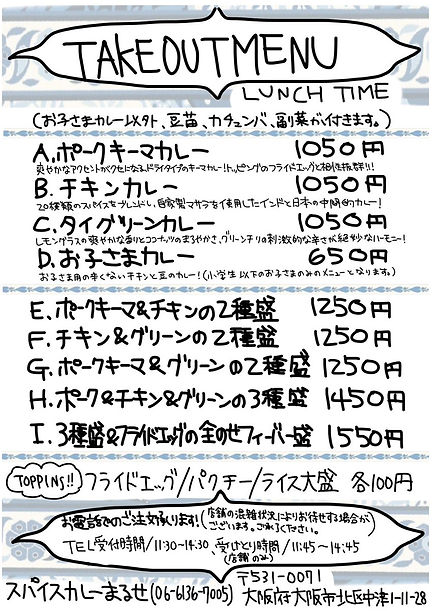 TAKEOUT MENU
LUNCH TIME
(お子さまカレー以外、豆苗、カチュンバ、副菜が付きます。)
A. ポークキーマカレー 1050円
爽やかなアクセントがクセになるドライタイプのキーマカレー!トッピングのフライドエッグと相性抜群!!
B. チキンカレー 1050円
20種類のスパイスをブレンドし、自家製マサラを使用してインドと日本の中間的カレー!
C. タイグリーンカレー 1050円
レモングラスの爽やかな香りとココナッツのまろやかさ、グリーンチリの刺激的な辛さが絶妙なハーモニー!
D. お子さまカレー 650円
お子さま用の辛くないチキンと豆のカレー!(小学生以下のお子さまのみのメニューとなります。)
E. ポークキーマ&チキンの2種盛 1250円
F. チキン&グリーンの2種盛 1250円
G. ポークキーマ&グリーンの2種盛 1250円
H. ポーク&チキン&グリーンの3種盛 1450円
I. 3種盛&フライドエッグの全のせフィーバー盛 1550円
TOPPINS!! フライドエッグ/パクチー/ライス大盛 各100円
お電話でのご注文承ります!(店舗の混雑状況によりお待せする場合が
ございます。ご了承ください。)
TEL受付時間/11:30-14:30 受けとり時間/11:45~14:45
(店舗のみ)
〒531-0071
スパイスカレーまるせ(06-6136-7005) 大阪府大阪市北区中津1-11-28